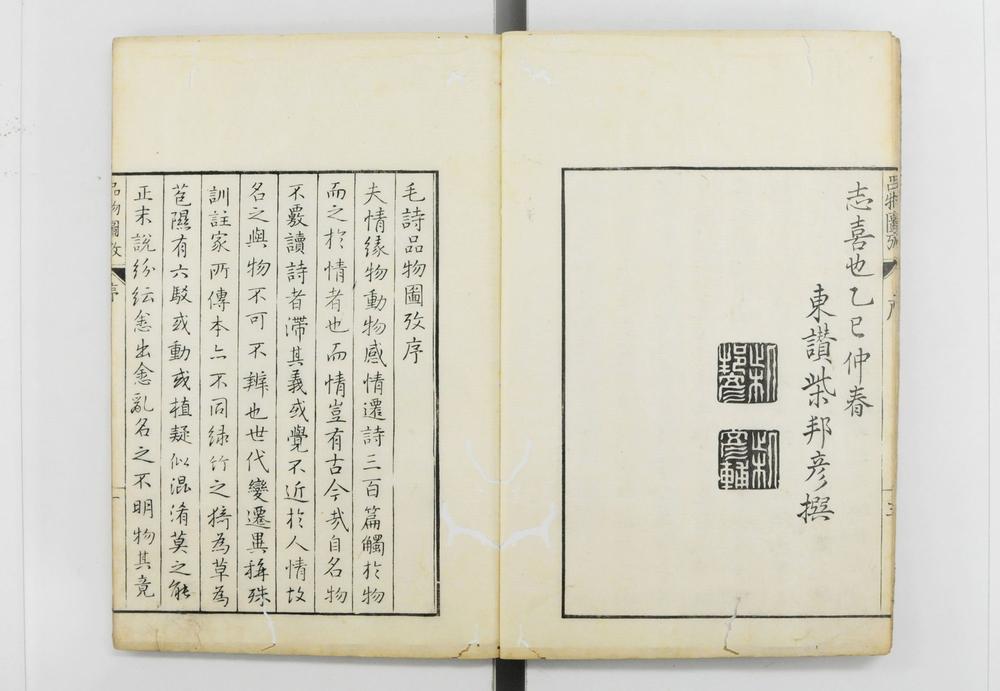 品物圖攷 序 三
志喜也乙巳仲春
東讚柴邦彦撰
毛詩品物圖攷序
夫情緣物動物感情遷詩三百篇觸於物
而之於情者也而情豈有古今哉自名物
不覈讀詩者滯其義或覺不近於人情故
名之與物不可不辨也世代變遷異稱殊
訓註家所傳本亦不同緑竹之猗為草為
苞隰有六駁或動或植疑似混淆莫之能
正末說紛紜愈出愈亂名之不明物其竟
品物圖攷 序 一